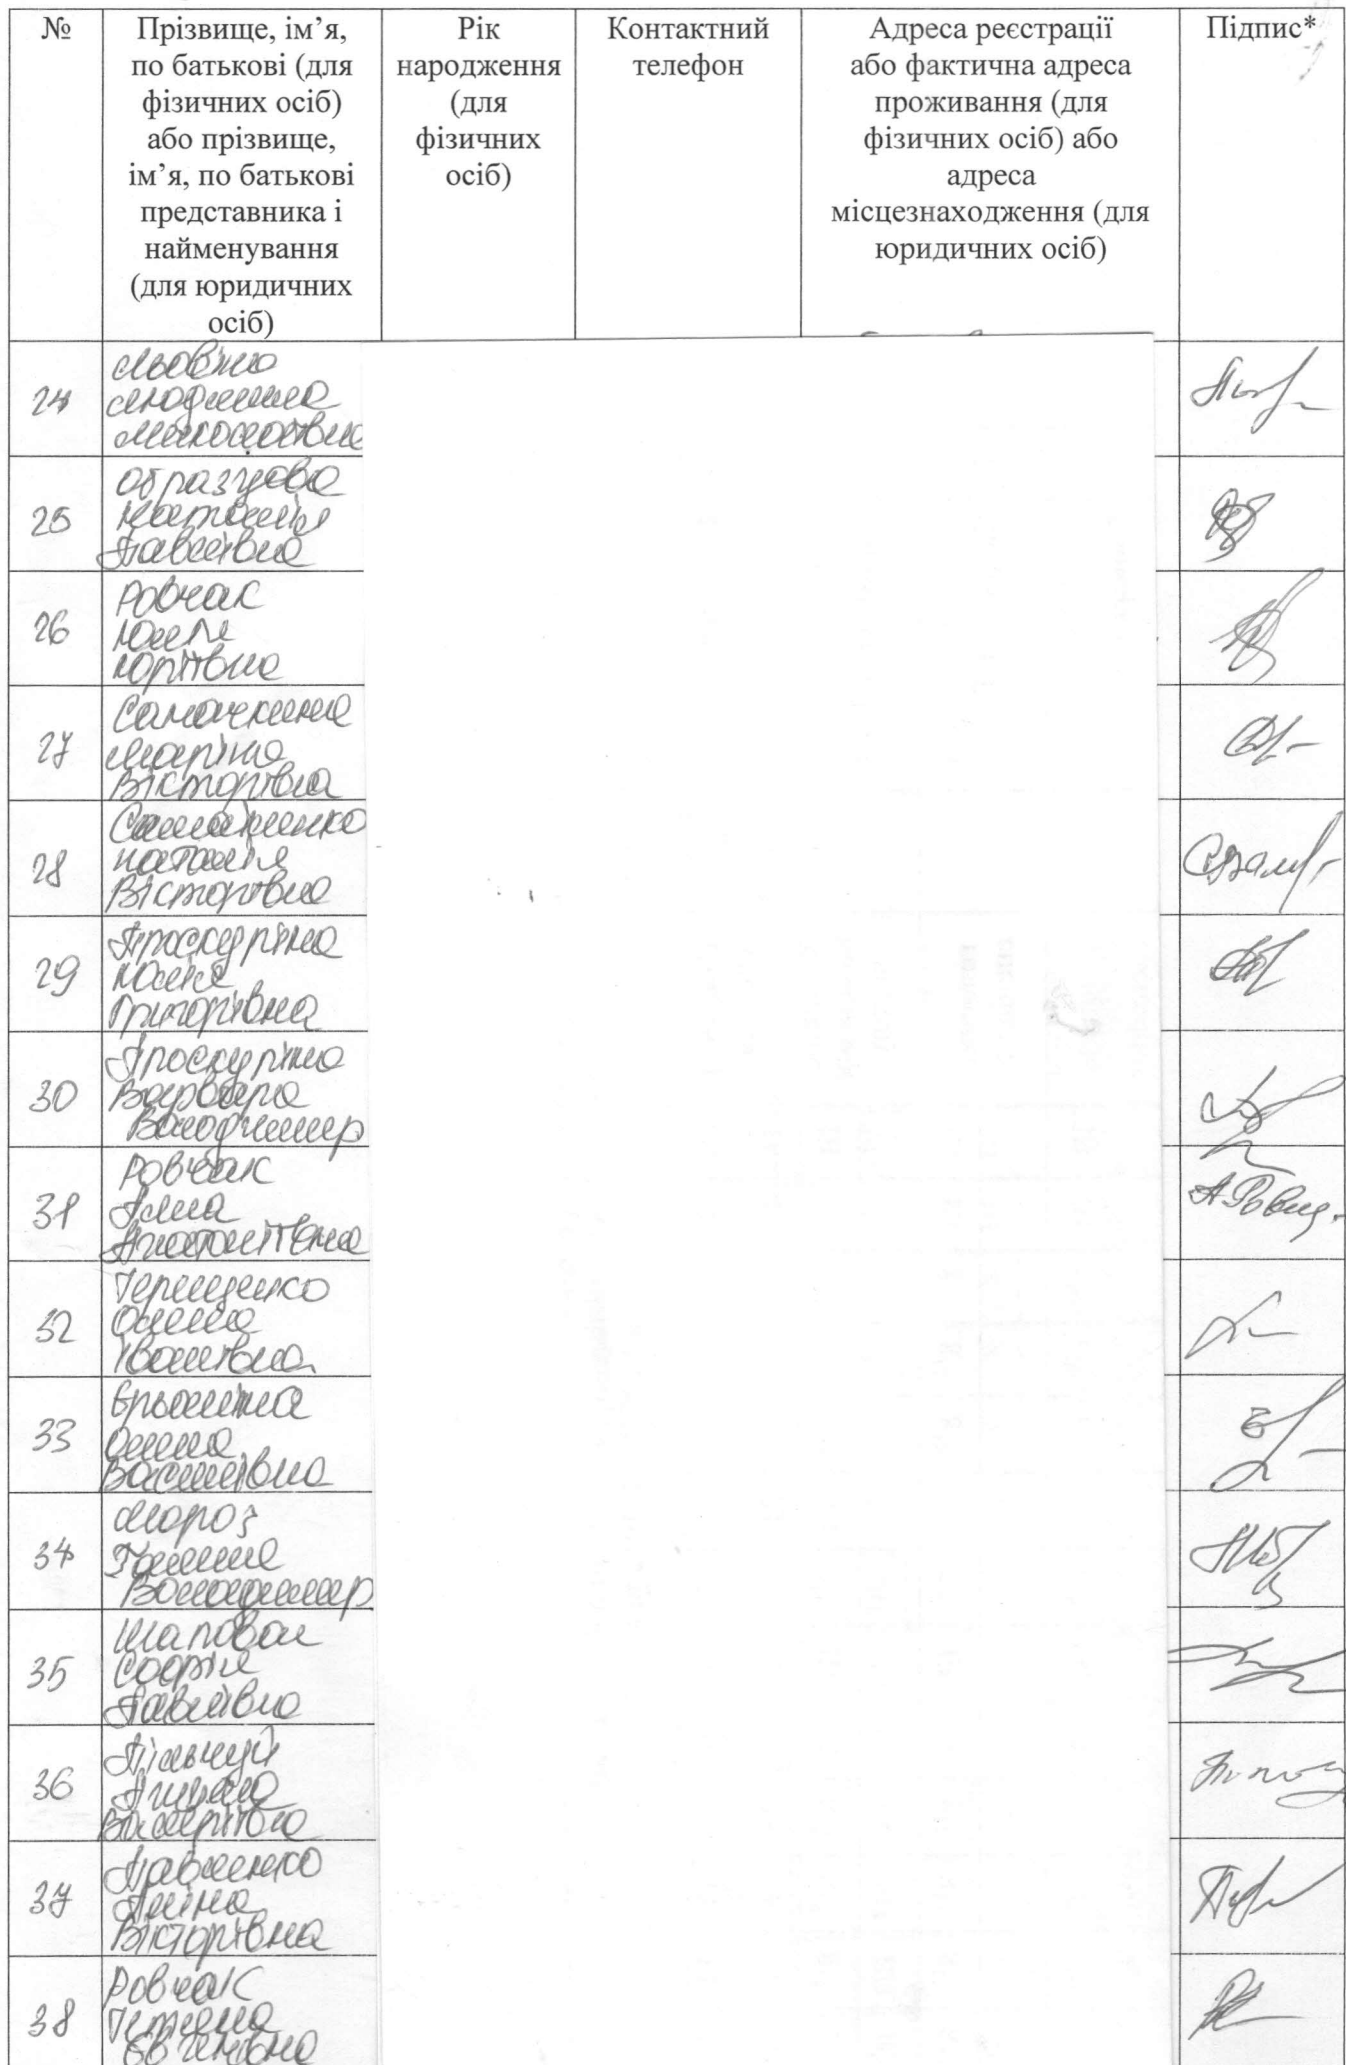 №
Прізвище, ім’я,
по батькові (для
фізичних осіб)
або прізвище,
ім’я, по батькові
представника і
найменування
(для юридичних
осіб)
Рік
народження
(для
фізичних
осіб)
Контактний
телефон
Адреса реєстрації
або фактична адреса
проживання (для
фізичних осіб) або
адреса
місцезнаходження (для
юридичних осіб)
Підпис*
24
Людмила
Миколаївна
25
Образцова
Наталія
Павлівна
26
Ровчак
Юлія
Юріївна
27
Самочкина
Маріна
Вікторівна
28
Наталія
Вікторівна
29
Проскуріна
Юлія
Григорівна
30
Проскуріна
Варвара
Володимир
31
Ровчак
Анна
Анатоліївна
А Ровч.
32
Терещенко
Олена
Іванівна
33
Олена
Василівна
34
Мороз
Галина
Володимир
35
Шаповал
Софія
Павлівна
36
Валеріївна
37
Павленко
Аліна
Вікторівна
38
Ровчак
Тетяна
Євгенівна